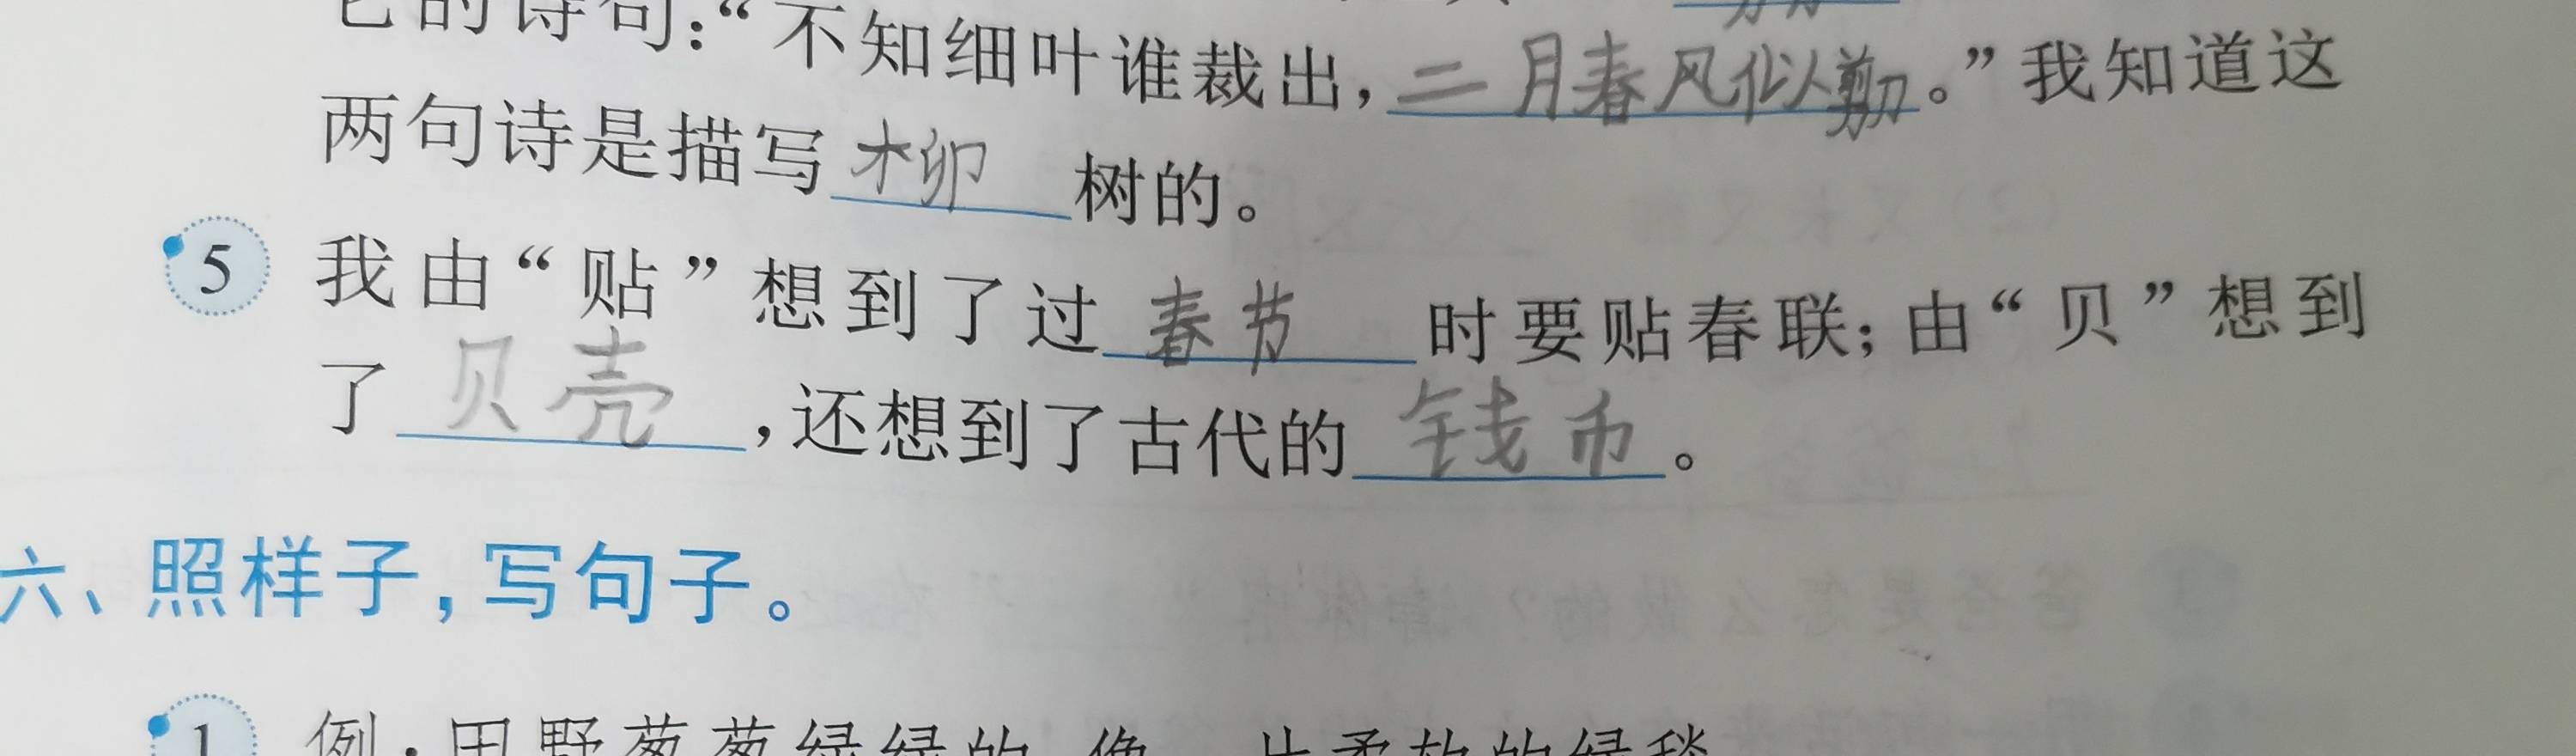 它的诗句:“不知细叶谁裁出,二月春风似剪刀。”我知道这
两句诗是描写柳树的。
5 我由“贴”想到了过春节时要贴春联;由“贝”想到
了贝壳,还想到了古代的钱币。
六、照样子,写句子。
1 例:田野葱葱绿绿的,像一片柔软的绿毯